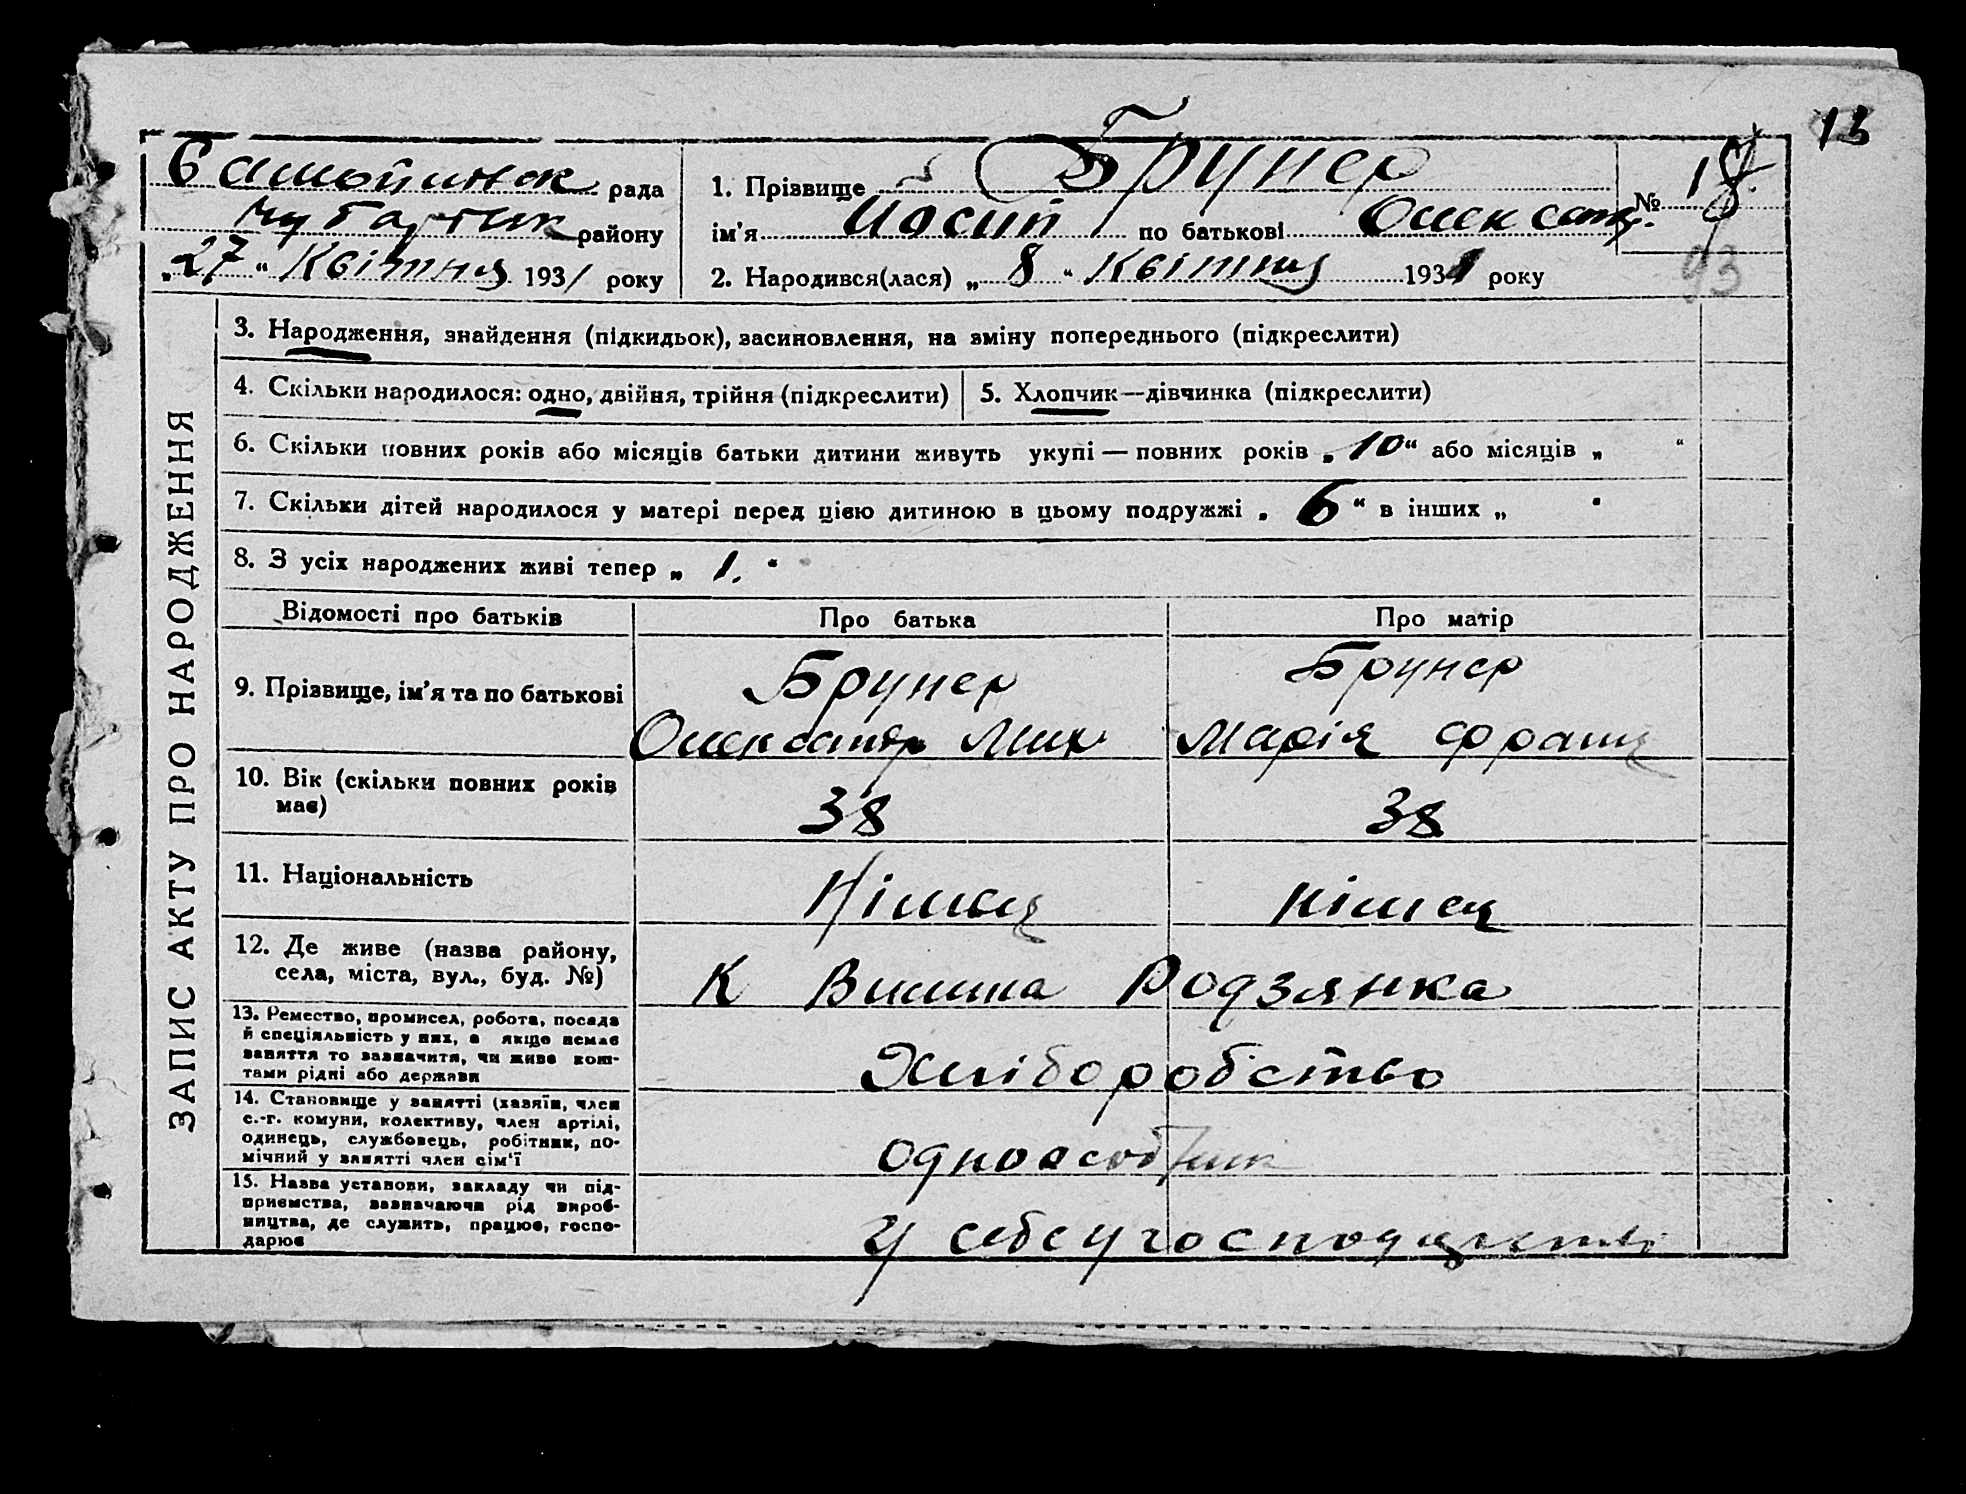 13
Самойинок рада
Чубартик району
„27“ Квітня 1931 року
1. Прізвище Брунер
ім'я Йосип по батькові Олександ.
№ 18
93
2. Народився(лася) „8“ Квітня 1931 року
ЗАПИС АКТУ ПРО НАРОДЖЕННЯ
3. Народження, знайдення (підкидьок), засиновлення, на зміну попереднього (підкреслити)
4. Скільки народилося: одно, двійня, трійня (підкреслити)
5. Хлопчик—дівчинка (підкреслити)
6. Скільки повних років або місяців батьки дитини живуть укупі — повних років „10“ або місяців „ “
7. Скільки дітей народилося у матері перед цією дитиною в цьому подружжі „6“ в інших „ “
8. З усіх народжених живі тепер „1.“
Відомості про батьків
Про батька
Про матір
9. Прізвище, ім'я та по батькові
Брунер
Олександр Мих
Брунер
Марія Франц
10. Вік (скільки повних років
має)
38
38
11. Національність
Німец
німец
12. Де живе (назва району,
села, міста, вул., буд. №)
К Вишша Родзянка
13. Ремество, промисел, робота, посада
й спеціяльність у них, а якщо немає
заняття то зазначити, чи живе кош-
тами рідні або держави
Хліборобство
14. Становище у занятті (хазяїн, член
с.-г. комуни, колективу, член артілі,
одинець, службовець, робітник, по-
мічний у занятті член сім'ї
одноособник
15. Назва установи, закладу чи під-
приємства, зазначаючи рід вироб-
ництва, де служить, працює, госпо-
дарює
У себе у господарстві